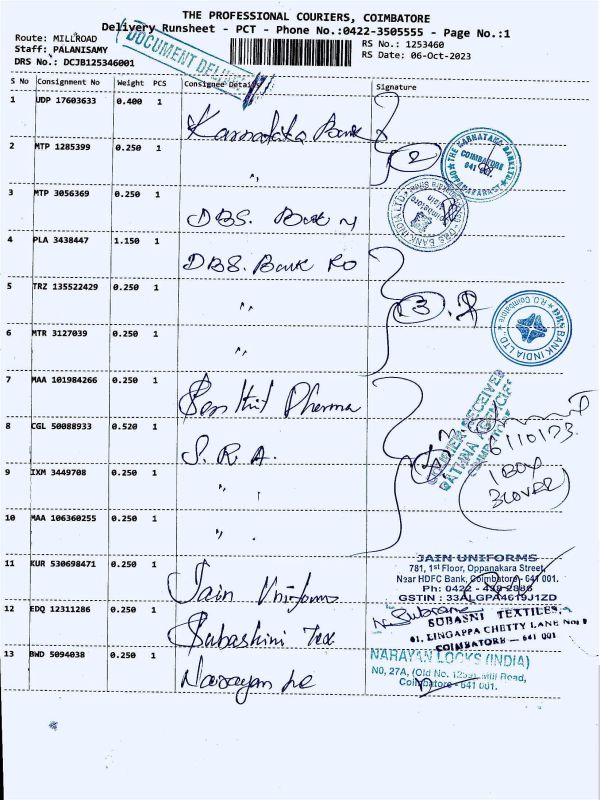 THE PROFESSIONAL COURIERS, COIMBATORE
Delivery Runsheet - PCT - Phone No.:0422-3505555 - Page No.:1
Route: MILLROAD
Staff: PALANISAMY
DRS No.: DCJB125346001
RS No.: 1253460
RS Date: 06-Oct-2023
S No Consignment No Weight PCS Consignee Details Signature
1 UDP 17603633 0.400 1 Karnataka Bank
2 MTP 1285399 0.250 1 "
3 MTP 3056369 0.250 1 DBS. Bank
4 PLA 3438447 1.150 1 DBS. Bank RO
5 TRZ 135522429 0.250 1 "
6 MTR 3127039 0.250 1 "
7 MAA 101984266 0.250 1 Senthil Pharma
8 CGL 50088933 0.520 1 S. R. A.
9 IXM 3449708 0.250 1 "
10 MAA 106360255 0.250 1 "
11 KUR 530698471 0.250 1 Jain Uniforms
12 EDQ 12311286 0.250 1 Subashini Tex
13 BWD 5094038 0.250 1 Narayan
DOCUMENT
2
THE KARNATAKA BANK LTD.
COIMBATORE
641 001.
DBS BANK INDIA LTD
3
DBS BANK INDIA LTD
R.O. Coimbatore
6/10/23
1 BOX
3 COVER
JAIN UNIFORMS
781, 1st Floor, Oppanakara Street,
Near HDFC Bank, Coimbatore- 641 001.
GSTIN : 33ALGPA4619J1ZD
TEXTILES,
LINGAPPA CHETTY LANE
COIMBATORE - 641 001
NARAYAN LOCKS (INDIA)
N0, 27A, (Old No. Mill Road,
Coimbatore - 641 001.